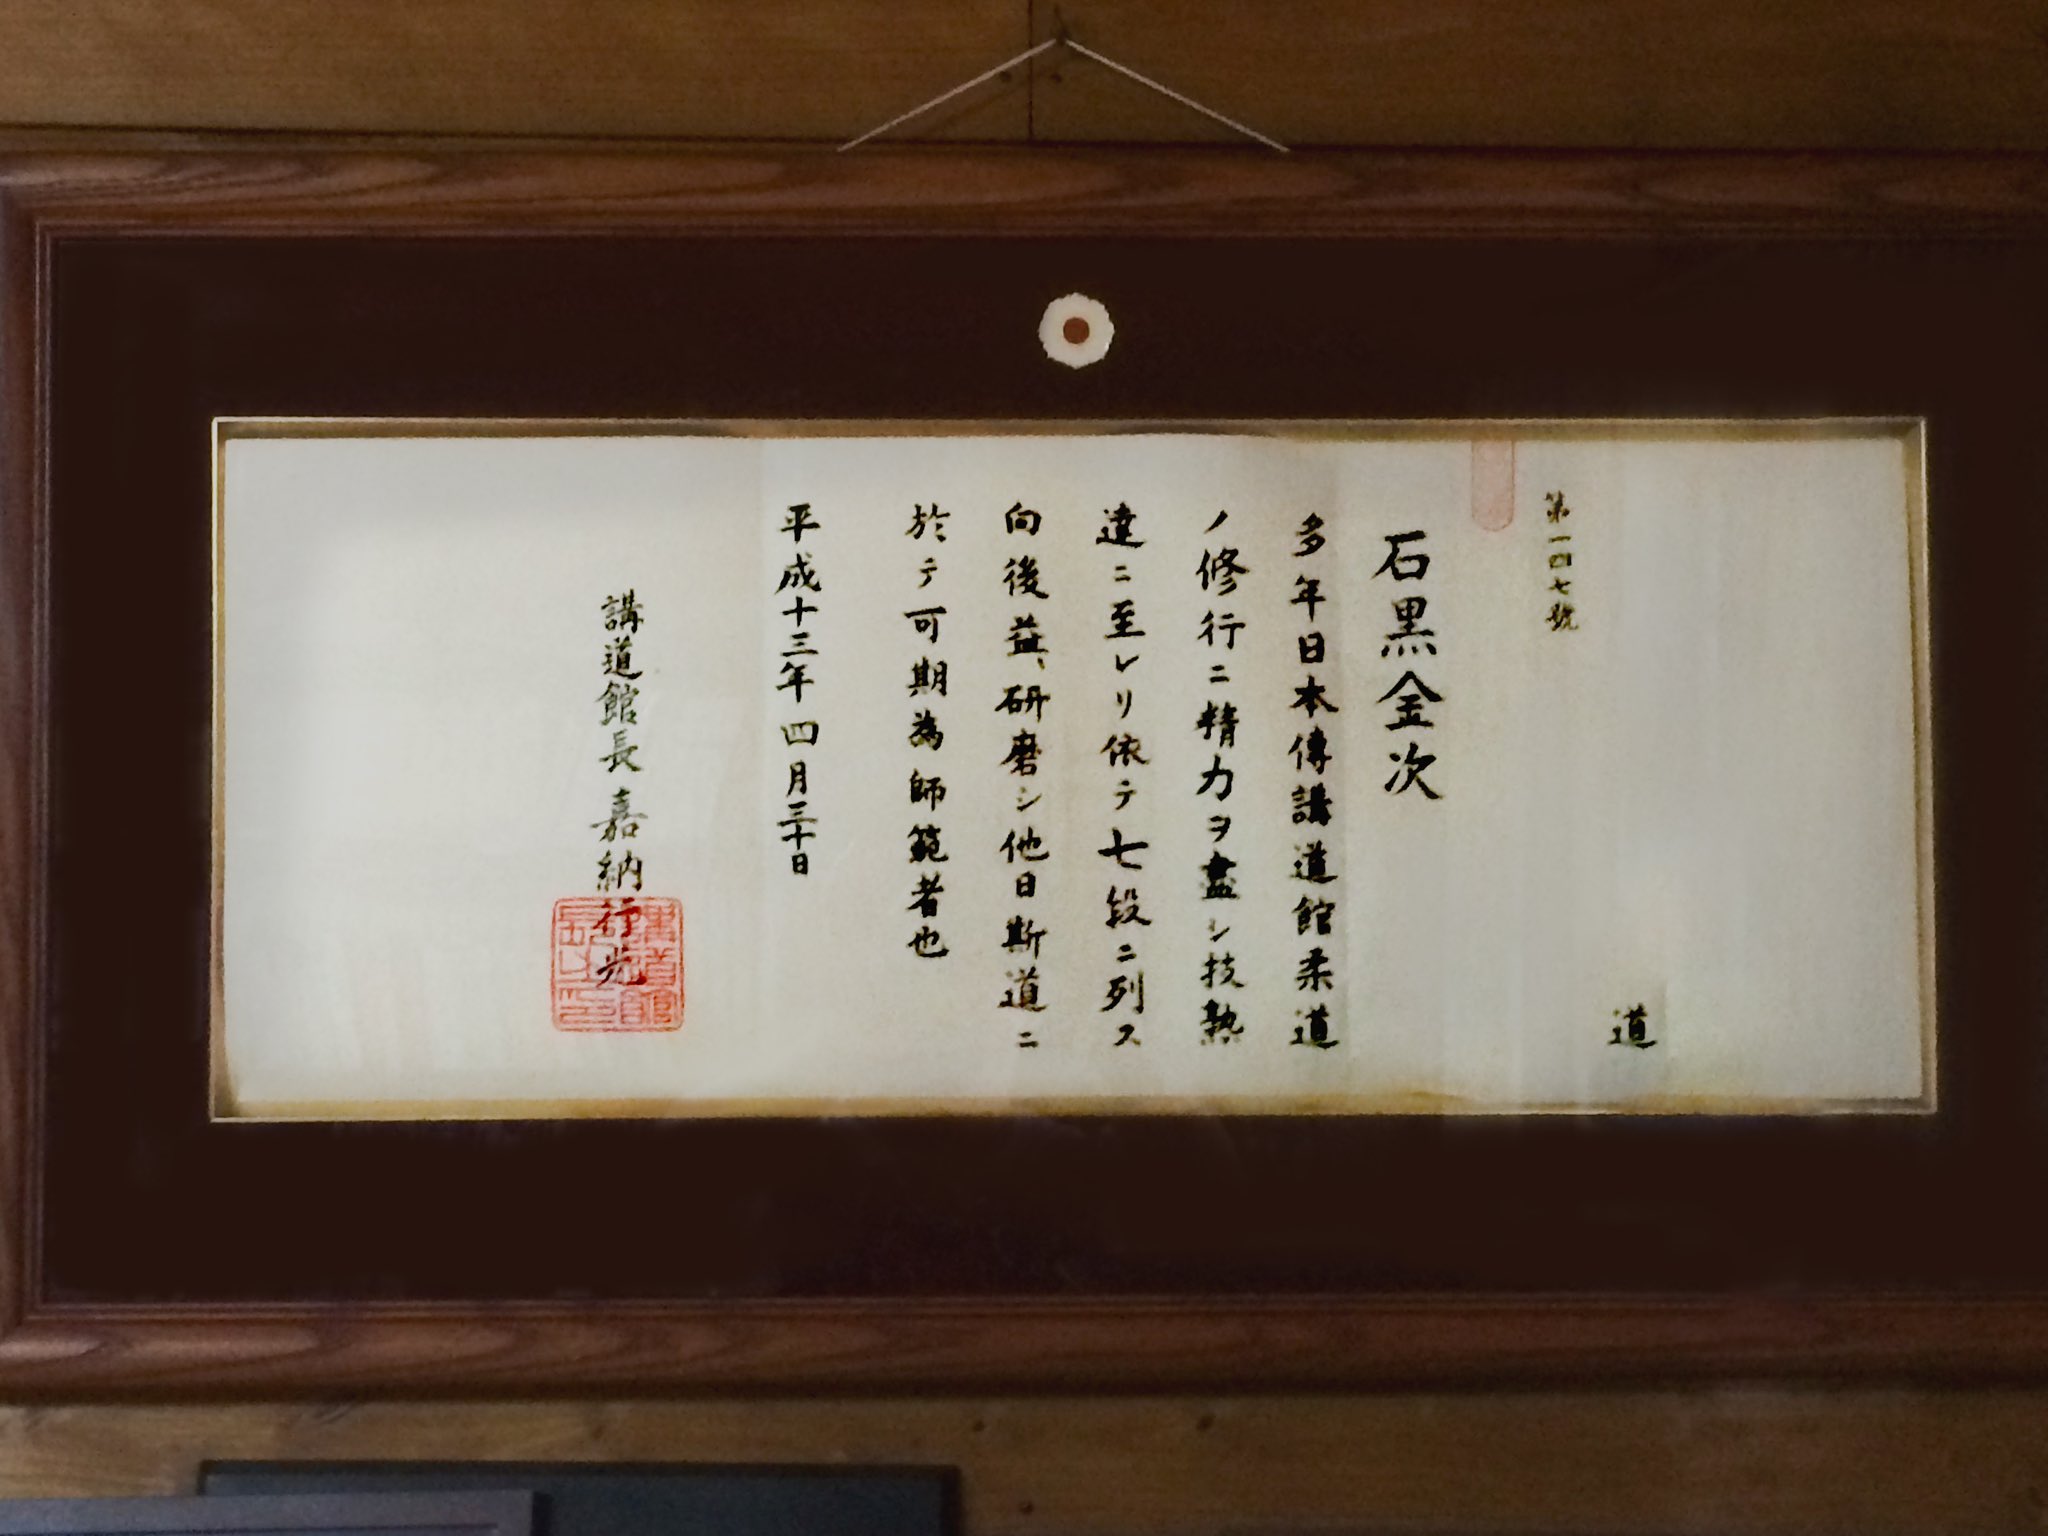 道
第一四七號
石黒金次
多年日本傳講道館柔道
ノ修行ニ精力ヲ盡シ技熟
達ニ至レリ依テ七段ニ列ス
向後益、研磨シ他日斯道ニ
於テ可期為師範者也
平成十三年四月三十日
講道館長 嘉納行光
講道館長之印